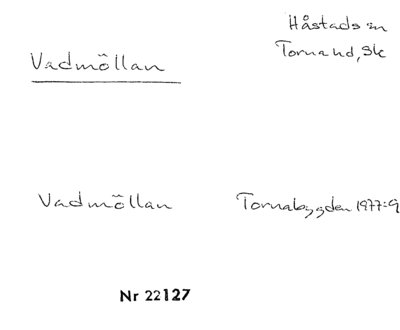 Håstads sn
Torna hd, Sk
Vadmöllan
Vadmöllan Tornabygden 1977:9
Nr 22127